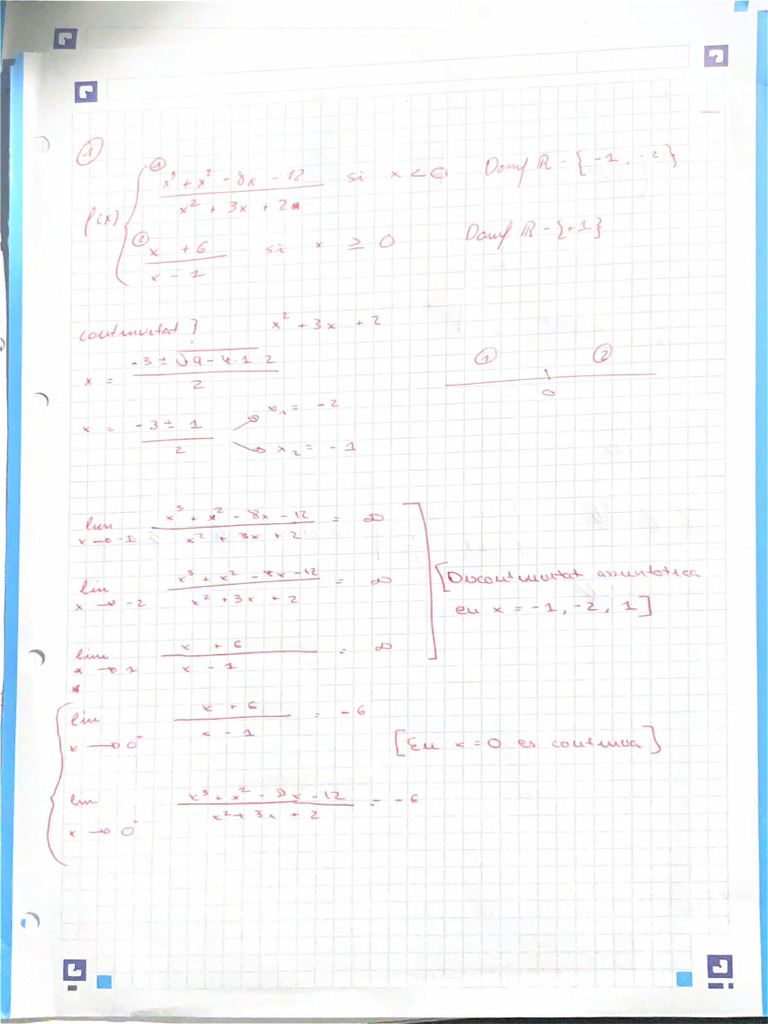 1
f(x) { ① x³ + x² - 8x - 12 / x² + 3x + 2 si x < 0 Domf R - {-1, -2}
② x + 6 / x - 1 si x ≥ 0 Domf R - {+1}
continuitat? x² + 3x + 2
x = -3 ± √9 - 4·1·2 / 2
① ②
0
x = -3 ± 1 / 2 x₁ = -2
x₂ = -1
lim x→-1 x³ + x² - 8x - 12 / x² + 3x + 2 = ∞
lim x→-2 x³ + x² - 8x - 12 / x² + 3x + 2 = ∞
[Discontinuitat assintotica
en x = -1, -2, 1]
lim x→1 x + 6 / x - 1 = ∞
lim x→0⁺ x + 6 / x - 1 = -6
[En x = 0 es continua]
lim x→0⁻ x³ + x² - 8x - 12 / x² + 3x + 2 = -6